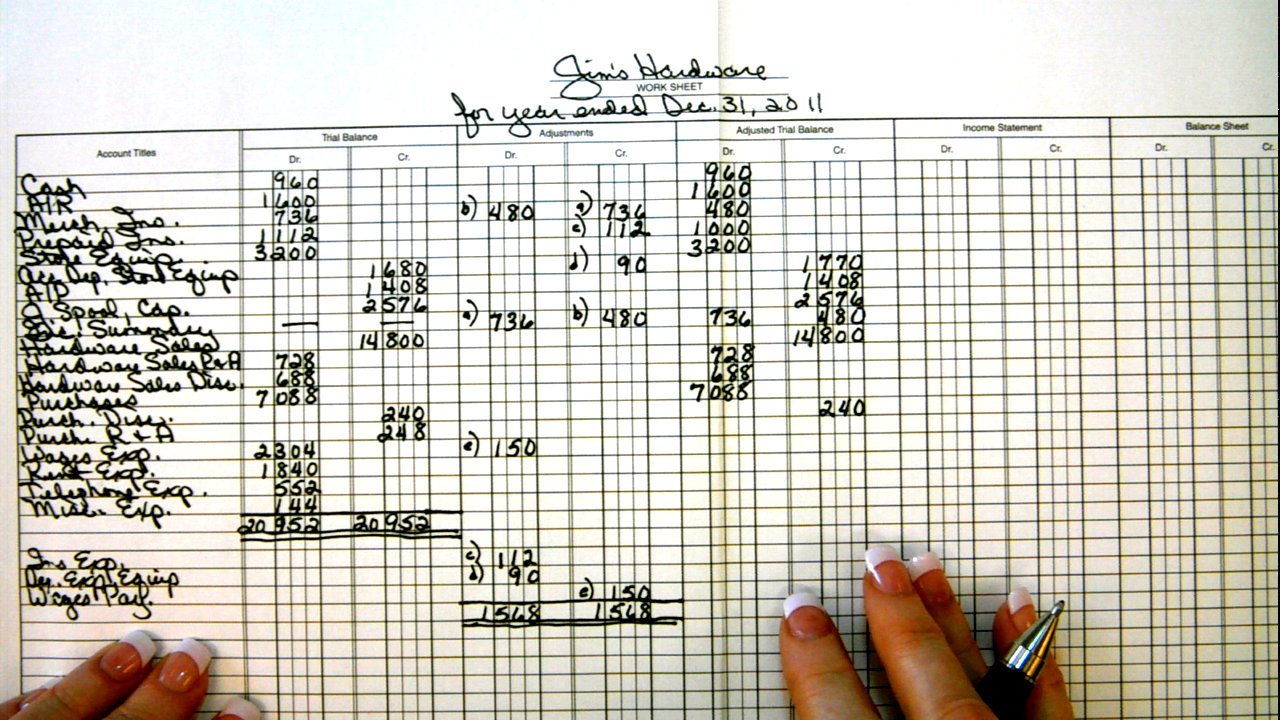 Jim's Hardware
WORK SHEET
for year ended Dec. 31, 2011
Account Titles Trial Balance Adjustments Adjusted Trial Balance Income Statement Balance Sheet
Dr. Cr. Dr. Cr. Dr. Cr. Dr. Cr. Dr. Cr.
Cash 960 960
A/R 1600 1600
Merch. Ins. 736 b) 480 a) 736 480
Prepaid Ins. 1112 c) 112 1000
Store Equip. 3200 3200
Acc. Dep. Store Equip 1680 d) 90 1770
A/P 1408 1408
O. Spool, Cap. 2576 2576
Summary — — a) 736 b) 480 736 480
Hardware Sales 14800 14800
Hardware Sales R&A 728 728
Hardware Sales Disc. 688 688
Purchases 7088 7088
Purch. Disc. 240 240
Purch. R & A 248
Wages Exp. 2304 e) 150
Rent Exp. 1840
Telephone Exp. 552
Misc. Exp. 144
20952 20952
Ins Exp. c) 112
Dep. Exp. Equip d) 90
Wages Pay. e) 150
1568 1568